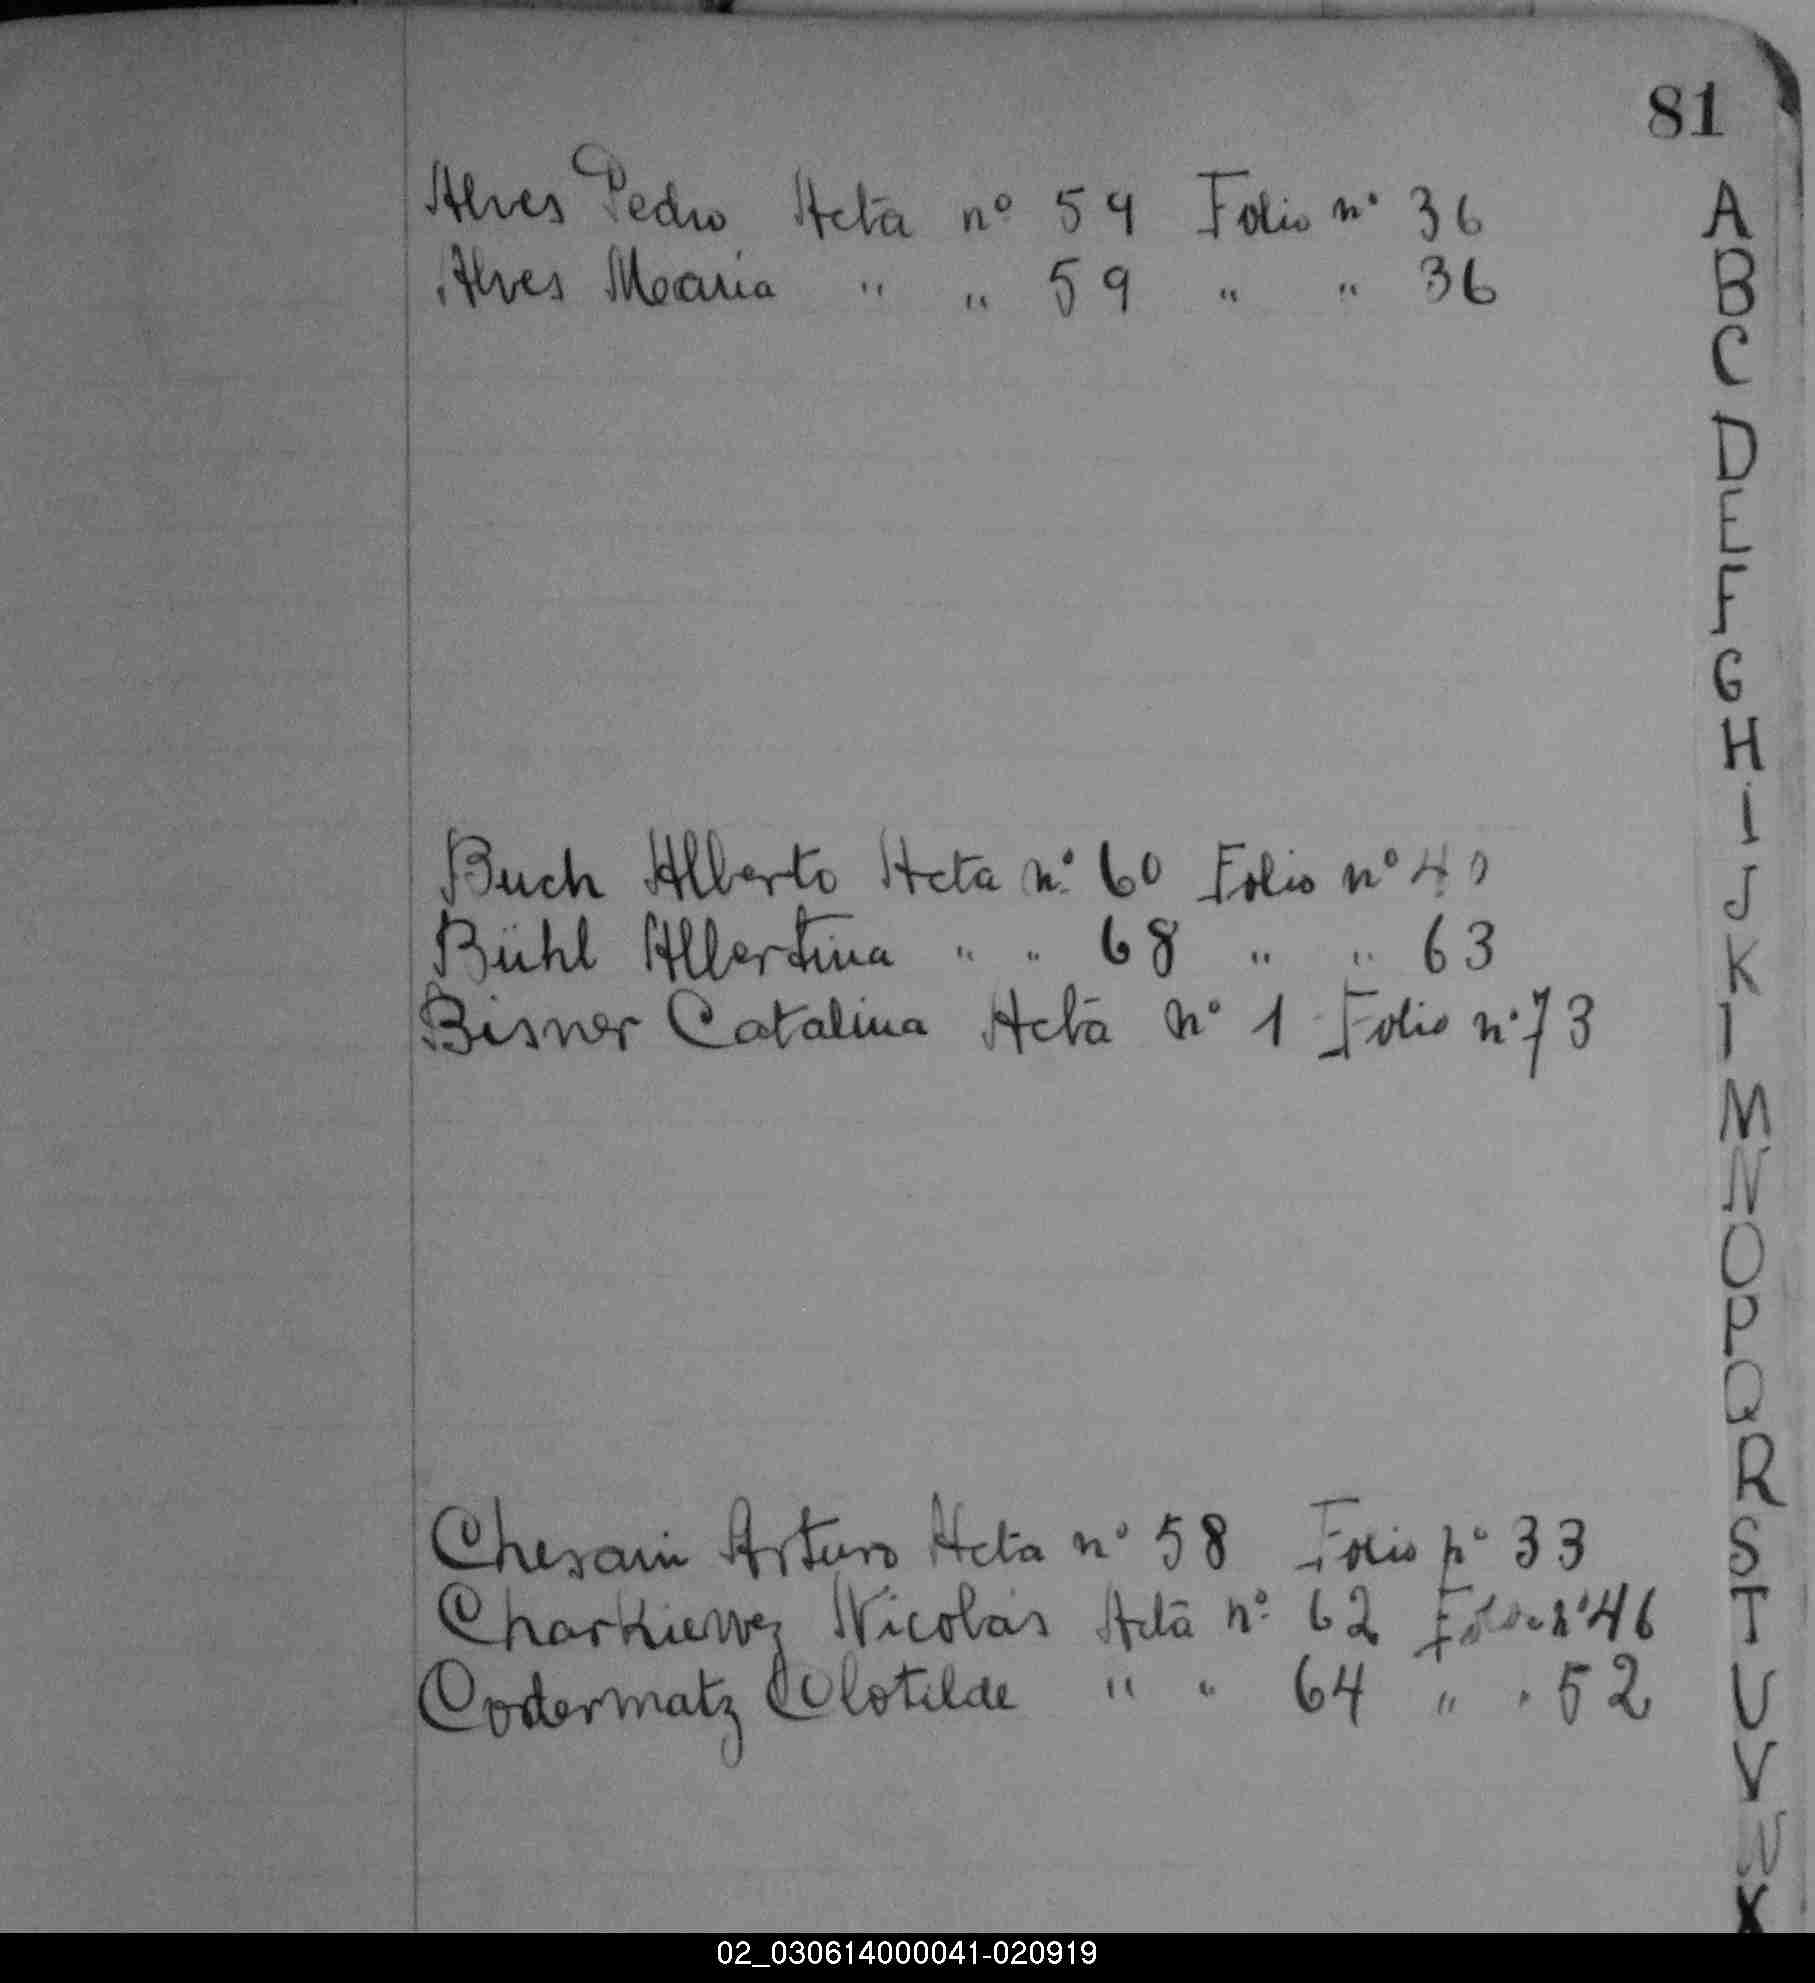 81
Alves Pedro Acta nº 59 Folio nº 36
Alves Maria " " 59 " " 36
Buch Alberto Acta nº 60 Folio nº 40
Bühl Albertina " " 68 " " 63
Bisner Catalina Acta nº 1 Folio nº 73
Chesani Arturo Acta nº 58 Folio nº 33
Charkiewez Nicolás Acta nº 62 Folio nº 46
Codermatz Clotilde " " 64 " " 52
A
B
C
D
E
F
G
H
I
J
K
L
M
N
O
P
Q
R
S
T
U
V
W
X
02_030614000041-020919